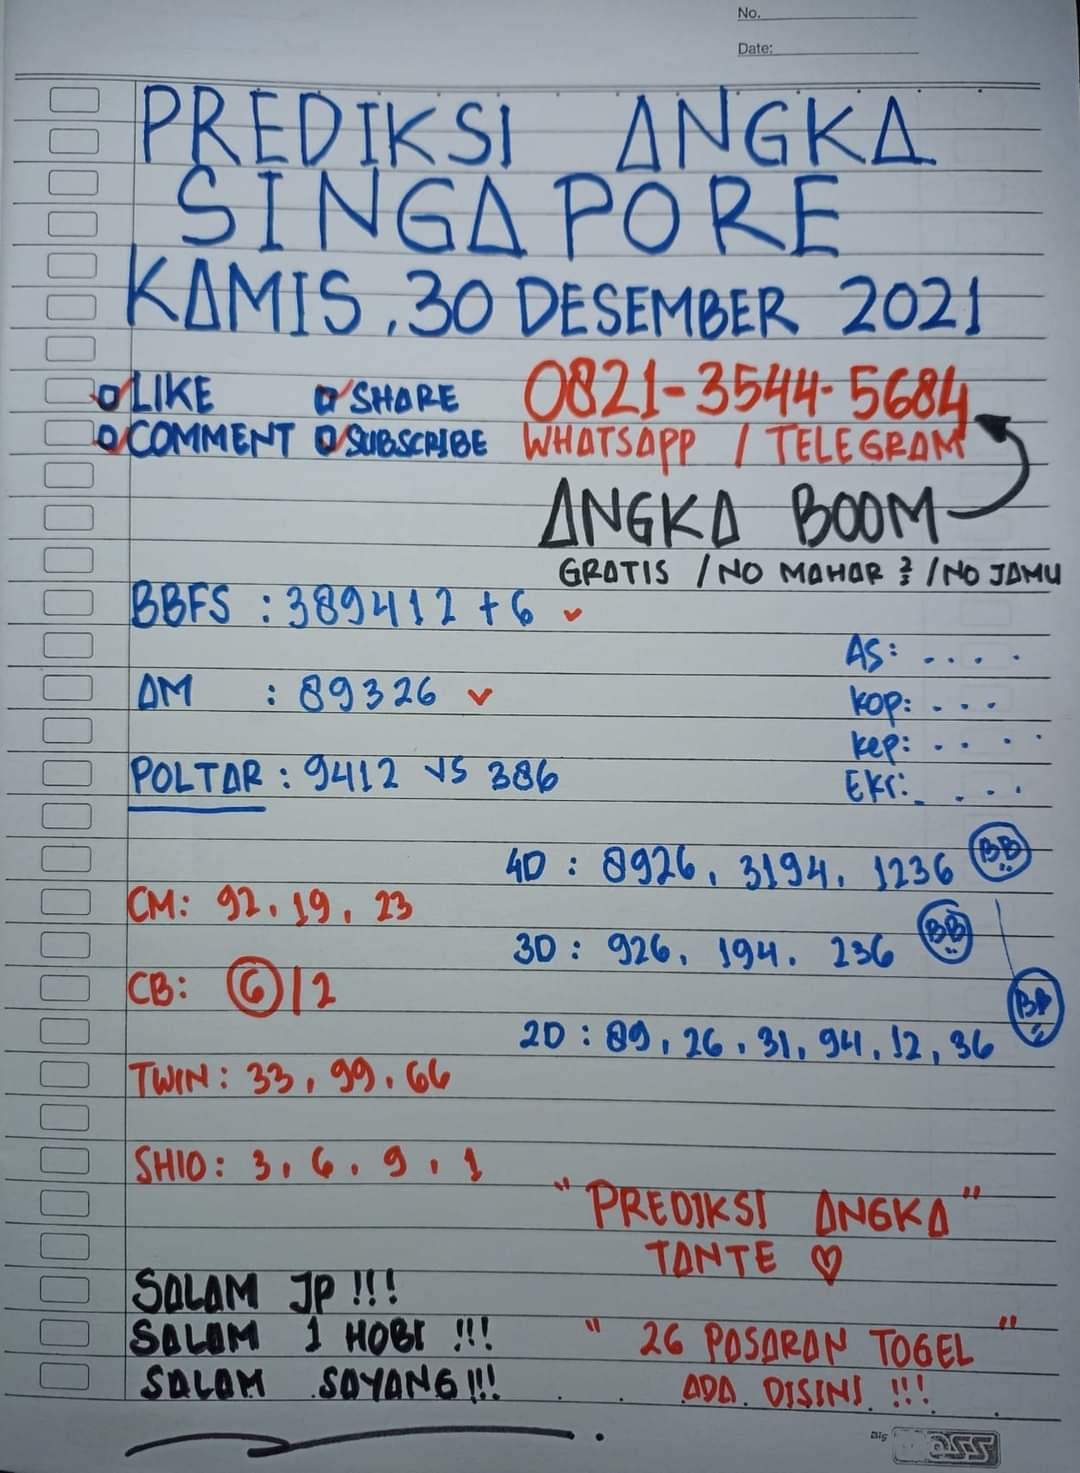 No.
Date:
PREDIKSI ANGKA
SINGAPORE
KAMIS, 30 DESEMBER 2021
LIKE SHARE 0821-3544-5684
COMMENT SUBSCRIBE WHATSAPP / TELEGRAM
ANGKA BOOM
GRATIS / NO MAHAR 2 / NO JAMU
BBFS : 389412 + 6
AS: ....
AM : 89326
KOP: ...
Kep: ....
POLTAR : 9412 VS 386
EKr: ....
4D : 8926, 3194, 1236 BB
CM: 92, 19, 23
3D : 926, 194. 236 BB
CB: 6/2
2D : 89, 26, 31, 94, 12, 36 BB
TWIN : 33, 99, 66
SHIO : 3, 6, 9, 1
" PREDIKSI ANGKA "
TANTE ♡
SALAM JP !!!
SALAM 1 HOBI !!!
" 26 PASARAN TOGEL "
SALAM SAYANG !!!
ADA DISINI !!!
Big